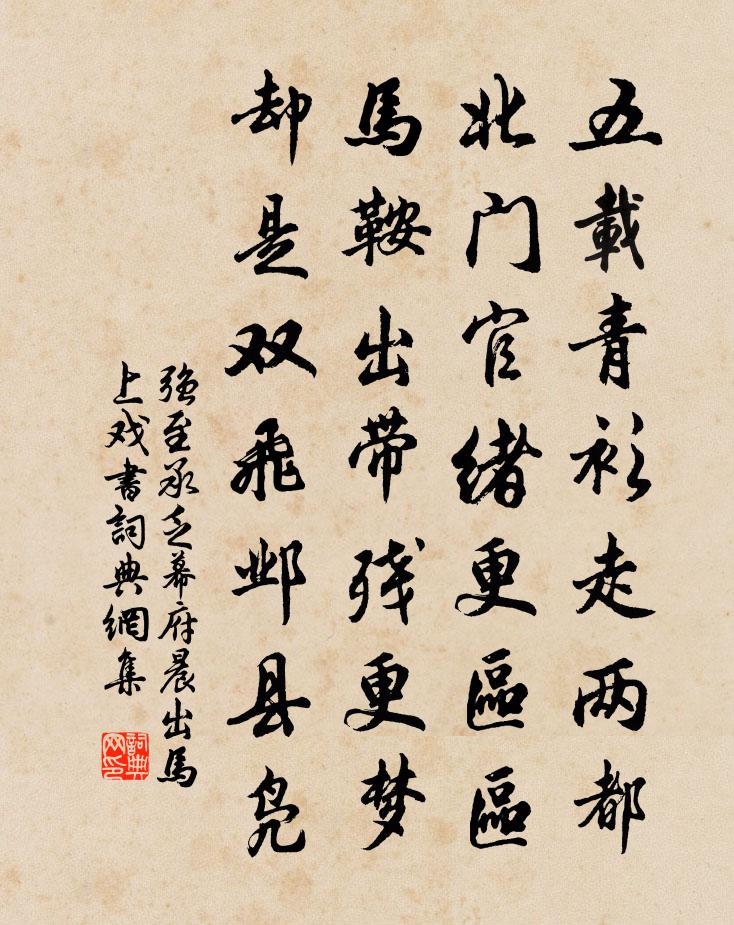 五載青衫走两都
北门官绪更區區
馬鞍出带残更梦
却是双飛邺县凫
强至承乏幕府晨出馬
上戏書詞典網集
詞典
网印